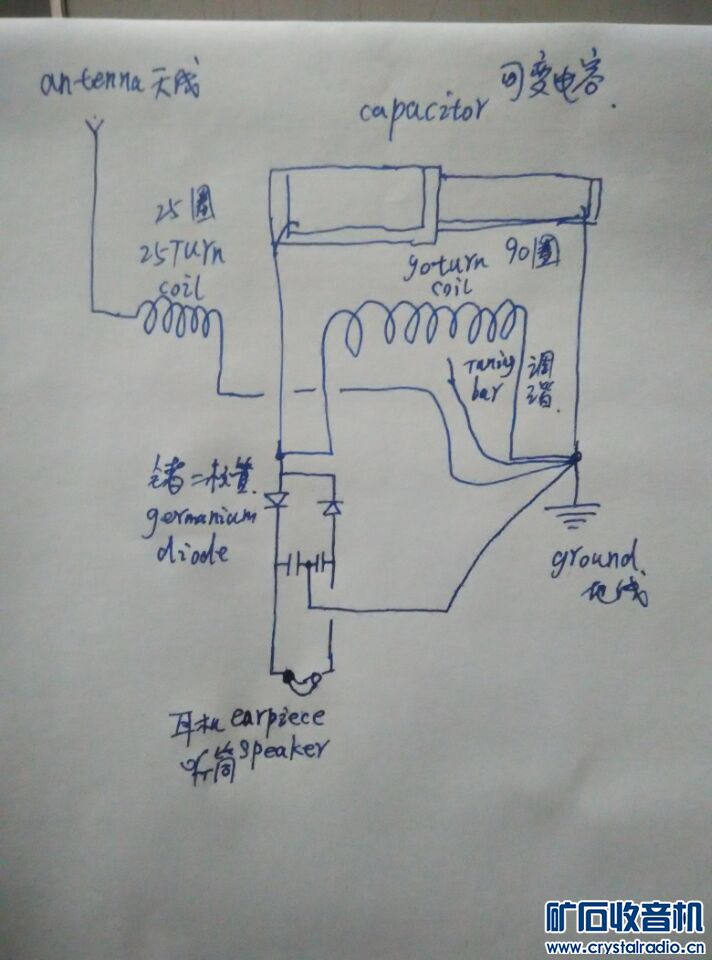 antenna 天线
capacitor 可变电容.
25圈
25Turn
coil
90turn 90圈
coil
Tuning 调
bar 谐.
锗二极管.
germanium
diode
ground.
地线
耳机 earpiece
听筒 speaker
矿石收音机
www.crystalradio.cn